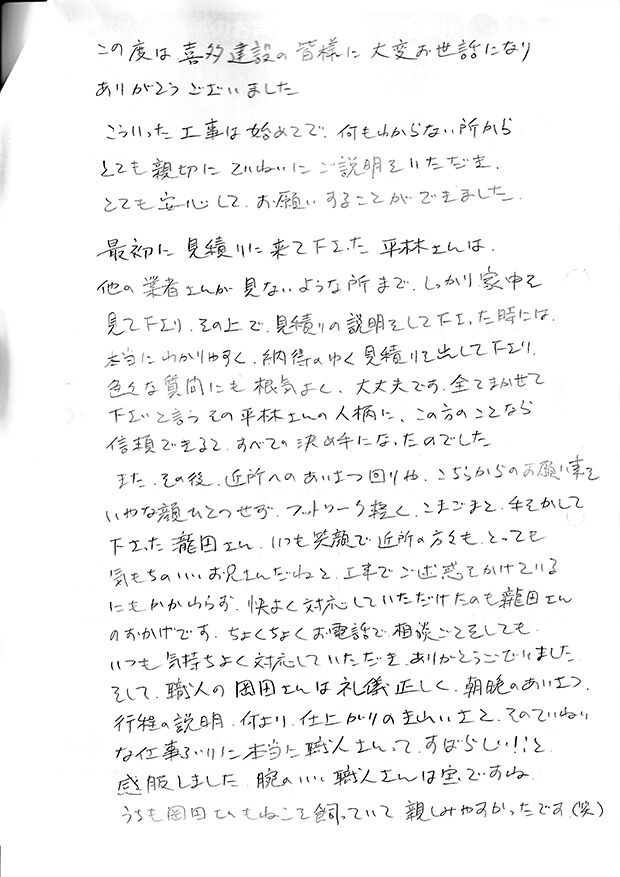 この度は喜多建設の皆様に大変お世話になり
ありがとうございました
こういった工事は始めてで、何もわからない所から
とても親切にていねいにご説明をいただき、
とても安心して、お願いすることができました。
最初に見積りに来て下さった平林さんは、
他の業者さんが見ないような所まで、しっかり家中を
見て下さり、その上で、見積りの説明をして下さった時には、
本当にわかりやすく、納得のゆく見積りを出して下さり、
色々な質問にも根気よく、大丈夫です。全てまかせて
下さいと言うその平林さんの人柄に、この方のことなら
信頼できると、すべての決め手になったのでした
また、その後、近所へのあいさつ回りや、こちらからのお願い事を
いやな顔ひとつせず、フットワーク軽く、こまごまと、手をかして
下さった瀧田さん、いつも笑顔で近所の方々も、とっても
気もちのいいお兄さんだねと、工事でご迷惑をかけている
にもかかわらず、快よく対応していただけたのも瀧田さん
のおかげです。ちょくちょくお電話で相談ごとをしても
いつも気持ちよく対応していただき、ありがとうございました
そして、職人の岡田さんは礼儀正しく、朝晩のあいさつ、
行程の説明、何より、仕上がりのきれいさと、そのていねい
な仕事ぶりに本当に職人さんって、すばらしい!!と
感服しました 腕のいい職人さんは宝ですね
うちも岡田さんもねこを飼っていて親しみやすかったです。(笑)